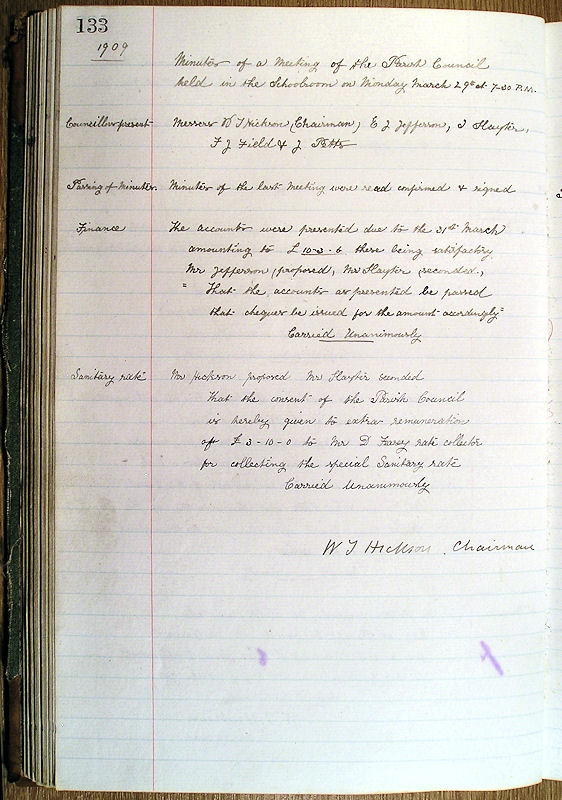 133
1909
Minutes of a Meeting of the Parish Council
held in the Schoolroom on Monday March 29th at 7-30 P.M.
Councillors present Messers W T Hickson (Chairman) E J Jefferson, T Slayter,
F J Field & J Potts
Passing of Minutes. Minutes of the last Meeting were read confirmed & signed
Finance The accounts were presented due to the 31st March
amounting to £10-3-6 these being satisfactory
Mr Jefferson, proposed, Mr Slayter, seconded,
" That the accounts as presented be passed
that cheques be issued for the amount accordingly"
Carried Unanimously
Sanitary rate Mr Hickson proposed Mr Slayter seconded
That the consent of the Parish Council
is hereby given to extra remuneration
of £3-10-0 to Mr D Farey rate collector
for collecting the special Sanitary rate
Carried Unanimously
W T Hickson. Chairman